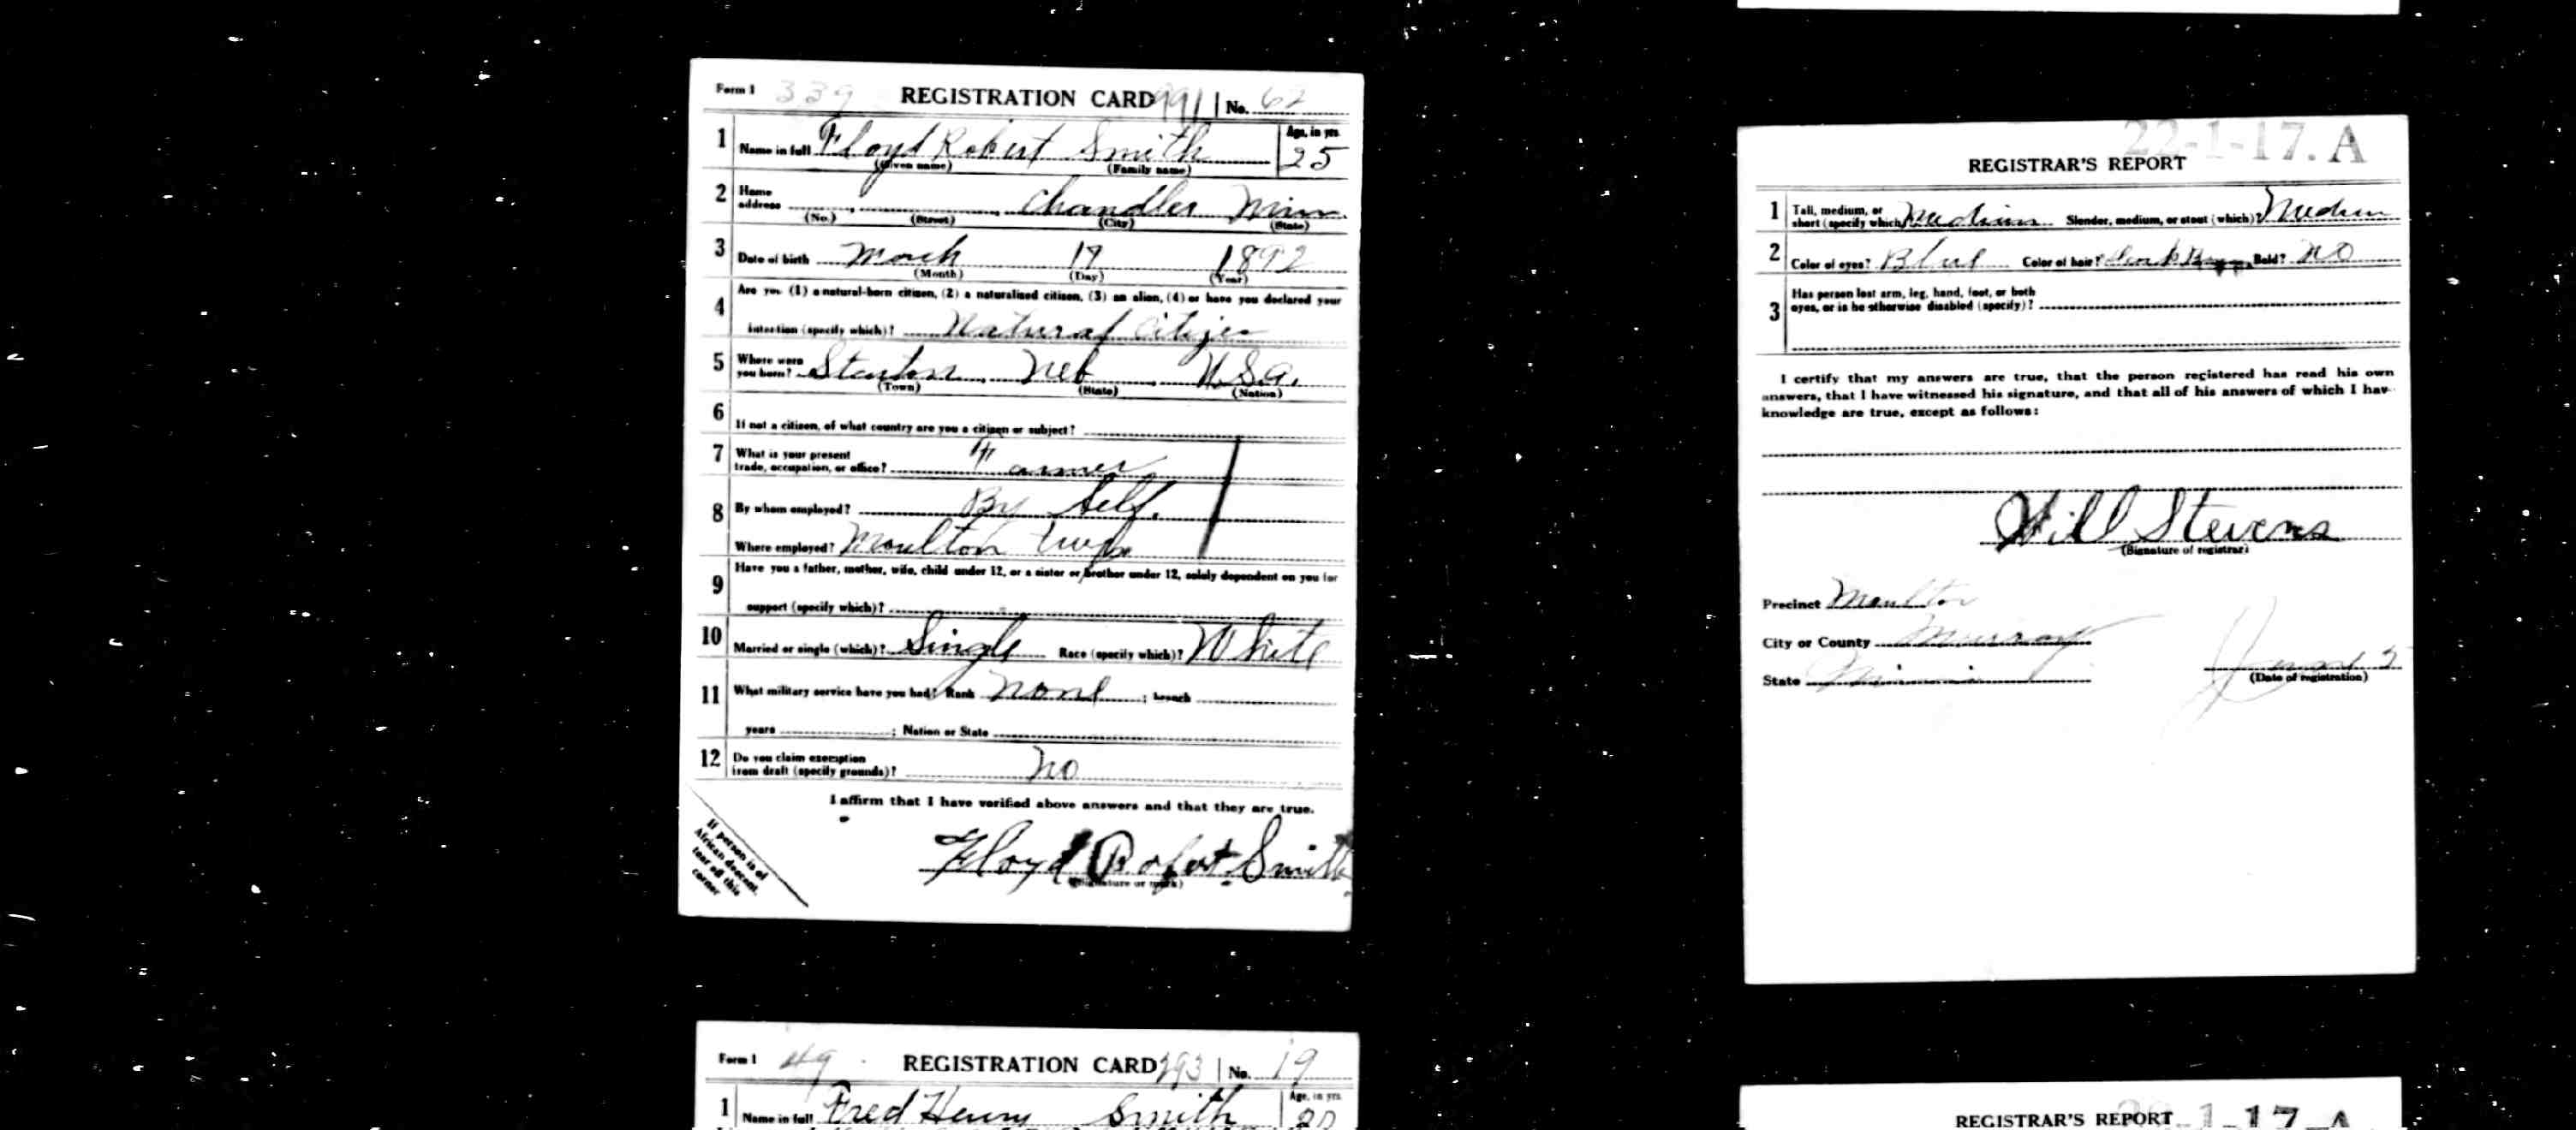 Form 1 339 REGISTRATION CARD 991 No. 62
1 Name in full Floyd Robert Smith Age, in yrs. 25
(Given name) (Family name)
2 Home address Chandler Minn
(No.) (Street) (City) (State)
3 Date of birth March 19 1892
(Month) (Day) (Year)
4 Are you (1) a natural-born citizen, (2) a naturalized citizen, (3) an alien, (4) or have you declared your
intention (specify which)? Natural Citizen
5 Where were you born? Stanton Neb U.S.a.
(Town) (State) (Nation)
6 If not a citizen, of what country are you a citizen or subject?
7 What is your present trade, occupation, or office? Farmer
8 By whom employed? By Self.
Where employed? Moulton twp
9 Have you a father, mother, wife, child under 12, or a sister or brother under 12, solely dependent on you for
support (specify which)?
10 Married or single (which)? Single Race (specify which)? White
11 What military service have you had? Rank None ; branch
years ; Nation or State
12 Do you claim exemption from draft (specify grounds)? No
I affirm that I have verified above answers and that they are true.
Floyd Robert Smith
(Signature or mark)
If person is of
African descent,
tear off this
corner
22-1-17. A
REGISTRAR'S REPORT
1 Tall, medium, or short (specify which)? Medium Slender, medium, or stout (which)? Medium
2 Color of eyes? Blue Color of hair? Dark Bald? No
3 Has person lost arm, leg, hand, foot, or both
eyes, or is he otherwise disabled (specify)?
I certify that my answers are true, that the person registered has read his own
answers, that I have witnessed his signature, and that all of his answers of which I hav
knowledge are true, except as follows:
Will Stevens
(Signature of registrar)
Precinct Moulton
City or County Murray
State June 5
(Date of registration)
Form 1 49 REGISTRATION CARD 293 No. 19
1 Name in full Fred Henry Smith Age, in yrs.
REGISTRAR'S REPORT 1-17-A